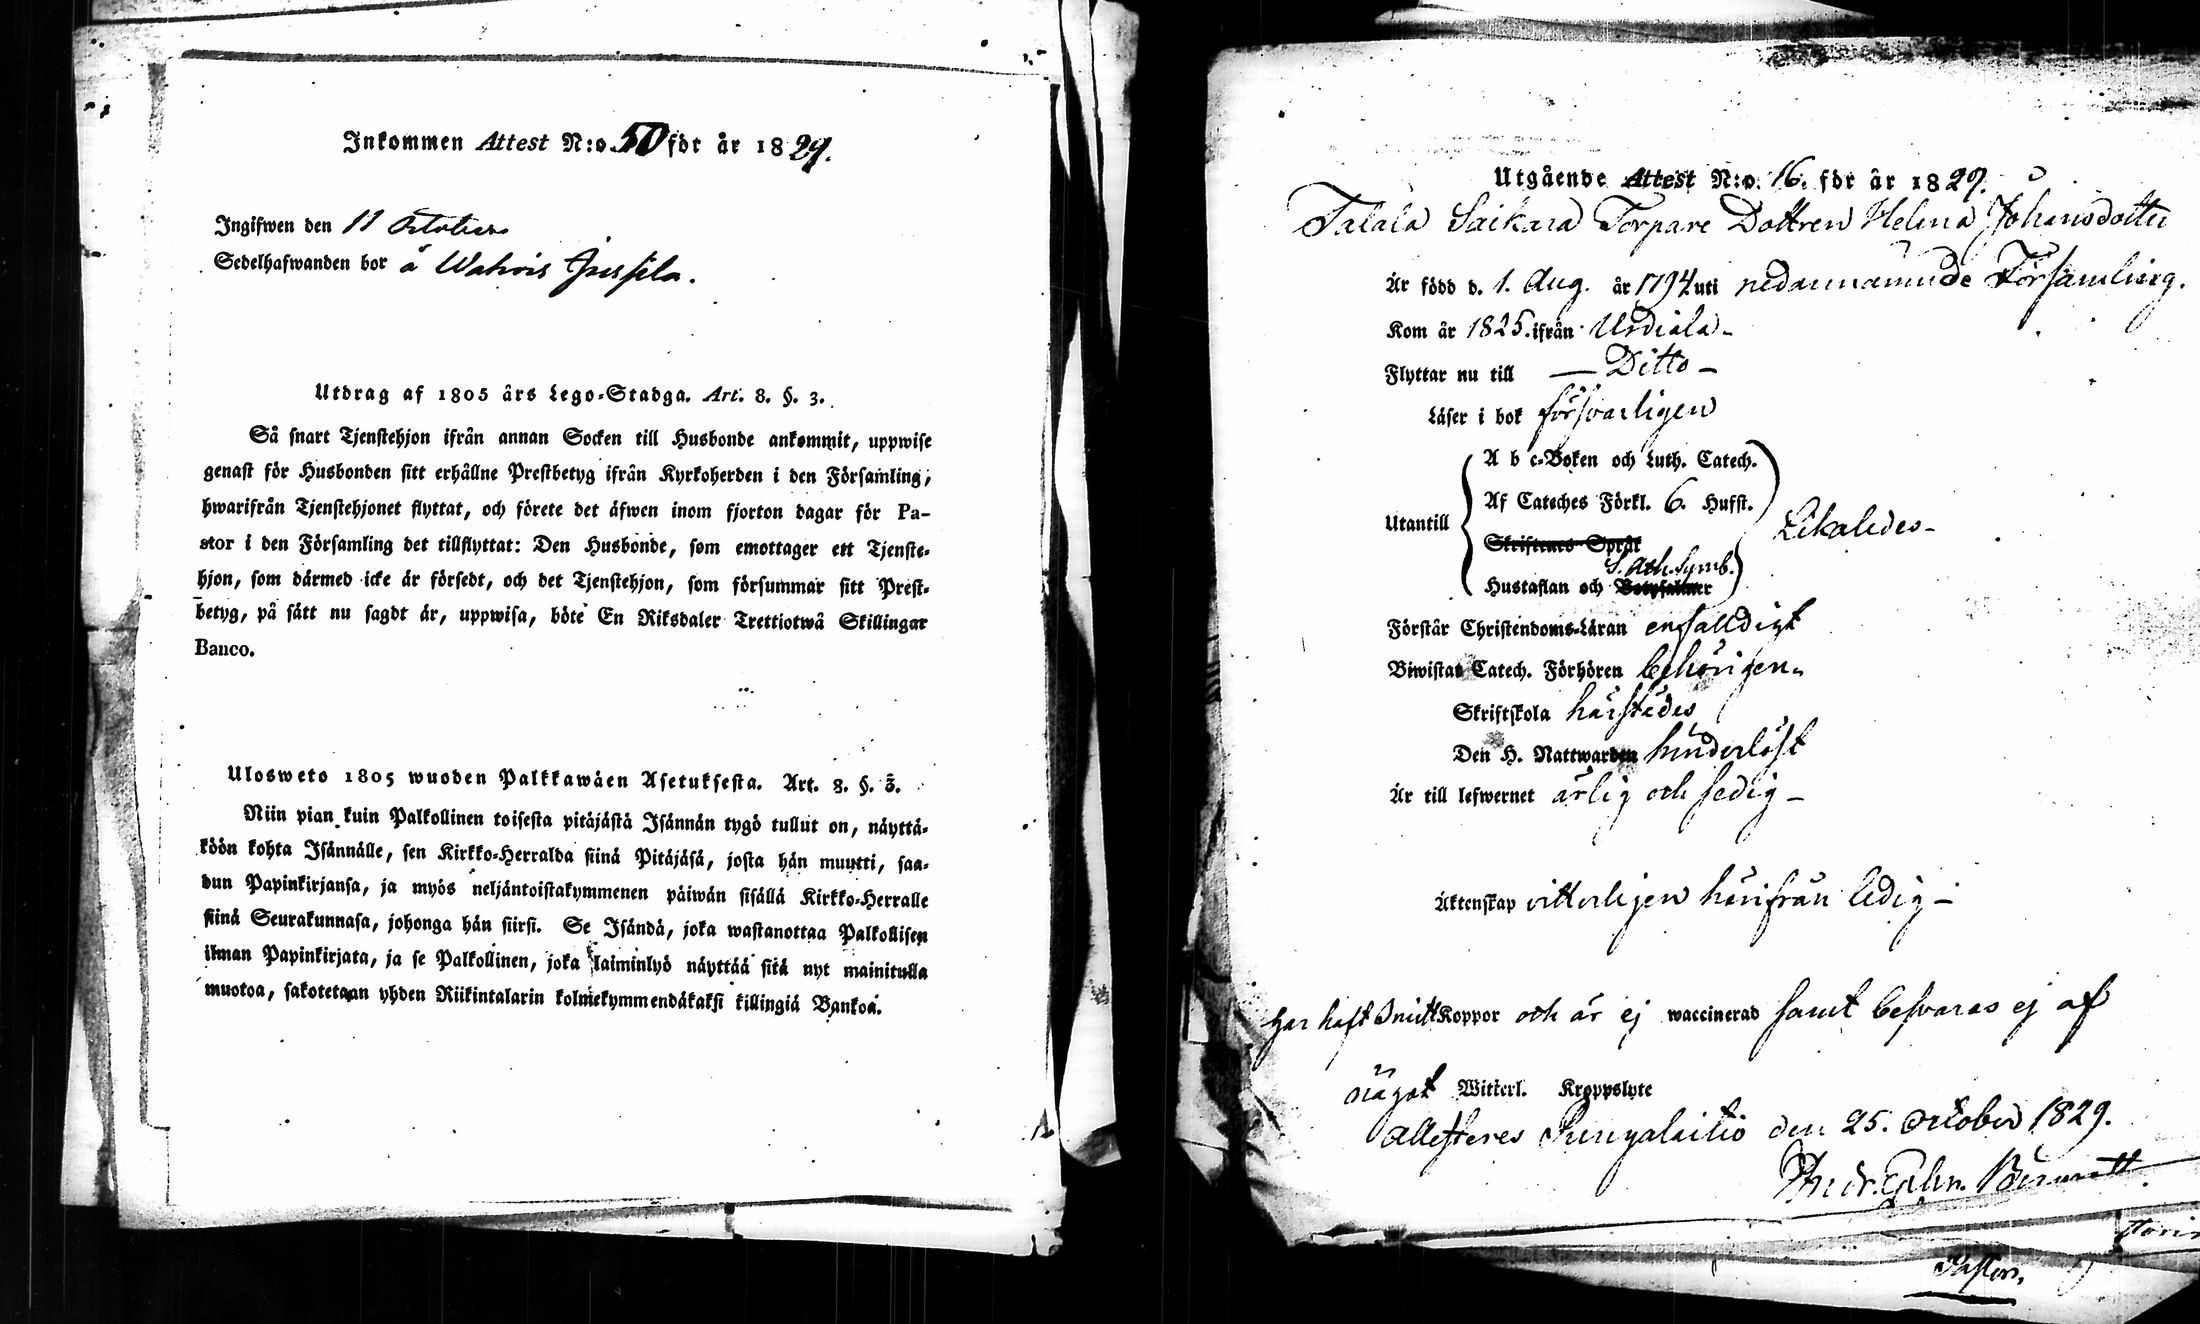 Inkommen Attest N:o 50 för år 1829.
Ingifwen den 11 October
Sedelhafwanden bor å Wahois Jussila.
Utdrag af 1805 års Lego-Stadga. Art. 8. §. 3.
Så snart Tjenstehjon ifrån annan Socken till Husbonde ankommit, uppwise
genast för Husbonden sitt erhållne Prestbetyg ifrån Kyrkoherden i den Församling,
hwarifrån Tjenstehjonet flyttat, och förete det äfwen inom fjorton dagar för Pa-
stor i den Församling det tillflyttat: Den Husbonde, som emottager ett Tjenste-
hjon, som därmed icke är försedt, och det Tjenstehjon, som försummar sitt Prest-
betyg, på sätt nu sagdt är, uppwisa, böte En Riksdaler Trettiotwå Skillingar
Banco.
Ulosweto 1805 wuoden Palkkawäen Asetuksesta. Art. 8. §. 3.
Niin pian kuin Palkollinen toisesta pitäjästä Isännän tygö tullut on, näyttä-
köön kohta Isännälle, sen Kirkko-Herralda siinä Pitäjäsä, josta hän muutti, saa-
dun Papinkirjansa, ja myös neljäntoistakymmenen päiwän sisällä Kirkko-Herralle
siinä Seurakunnasa, johonga hän siirsi. Se Isändä, joka wastanottaa Palkollisen
ilman Papinkirjata, ja se Palkollinen, joka laiminlyö näyttää sitä nyt mainitulla
muotoa, sakotetaan yhden Riikintalarin kolmekymmendäkaksi killingiä Bankoa.
Utgående Attest N:o. 16. för år 1829.
Talala Saikara Torpare Dottren Helena Johansdotter
Är född d. 1. Aug. år 1794 uti nedannämnde Församling.
Kom år 1825. ifrån Urdiala -
Flyttar nu till — Ditto -
Läser i bok försvarligen
A b c-Boken och Luth. Catech.
Af Cateches Förkl. 6. Hufst.
Utantill
Likaledes -
Skriftenes Språk
S. Ath. Symb.
Hustaflan och Botpsalmer
Förstår Christendoms-Läran enfalldigt
Biwistat Catech. Förhören behörigen
Skriftskola härstädes
Den H. Nattwarden hinderlöst
Är till lefwernet ärlig och sedig -
Äktenskap vitterligen härifrån ledig -
har haft Smitt Koppor och är ej waccinerad samt besvaras ej af
något Witterl. Kroppslyte
Attesteres Pungalaitio den 25. October 1829.
Pastor.